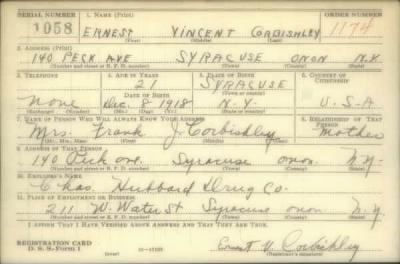 SERIAL NUMBER 1. NAME (Print) ORDER NUMBER
1058 ERNEST VINCENT CORBISHLEY 1174
(First) (Middle) (Last)
2. ADDRESS (Print)
140 PECK AVE SYRACUSE ONON N.Y.
(Number and street or R. F. D. number) (Town) (County) (State)
3. TELEPHONE 4. AGE IN YEARS 5. PLACE OF BIRTH 6. COUNTRY OF CITIZENSHIP
21 SYRACUSE
DATE OF BIRTH
None Dec. 8 1918 N.Y. U-S-A
(Exchange) (Number) (Mo.) (Day) (Yr.) (State or country)
7. NAME OF PERSON WHO WILL ALWAYS KNOW YOUR ADDRESS 8. RELATIONSHIP OF THAT PERSON
Mrs. Frank J. Corbishley Mother
(Mr., Mrs., Miss) (First) (Middle) (Last)
9. ADDRESS OF THAT PERSON
140 Peck ave. Syracuse onon. N.Y.
(Number and street or R. F. D. number) (Town) (County) (State)
10. EMPLOYER'S NAME
Chas. Hubbard Drug Co.
11. PLACE OF EMPLOYMENT OR BUSINESS
211 W. Water St Syracuse onon. N.Y.
(Number and street or R. F. D. number) (Town) (County) (State)
I AFFIRM THAT I HAVE VERIFIED ABOVE ANSWERS AND THAT THEY ARE TRUE.
REGISTRATION CARD
D. S. S. Form 1 (over) Ernest V. Corbishley
(Registrant's signature)